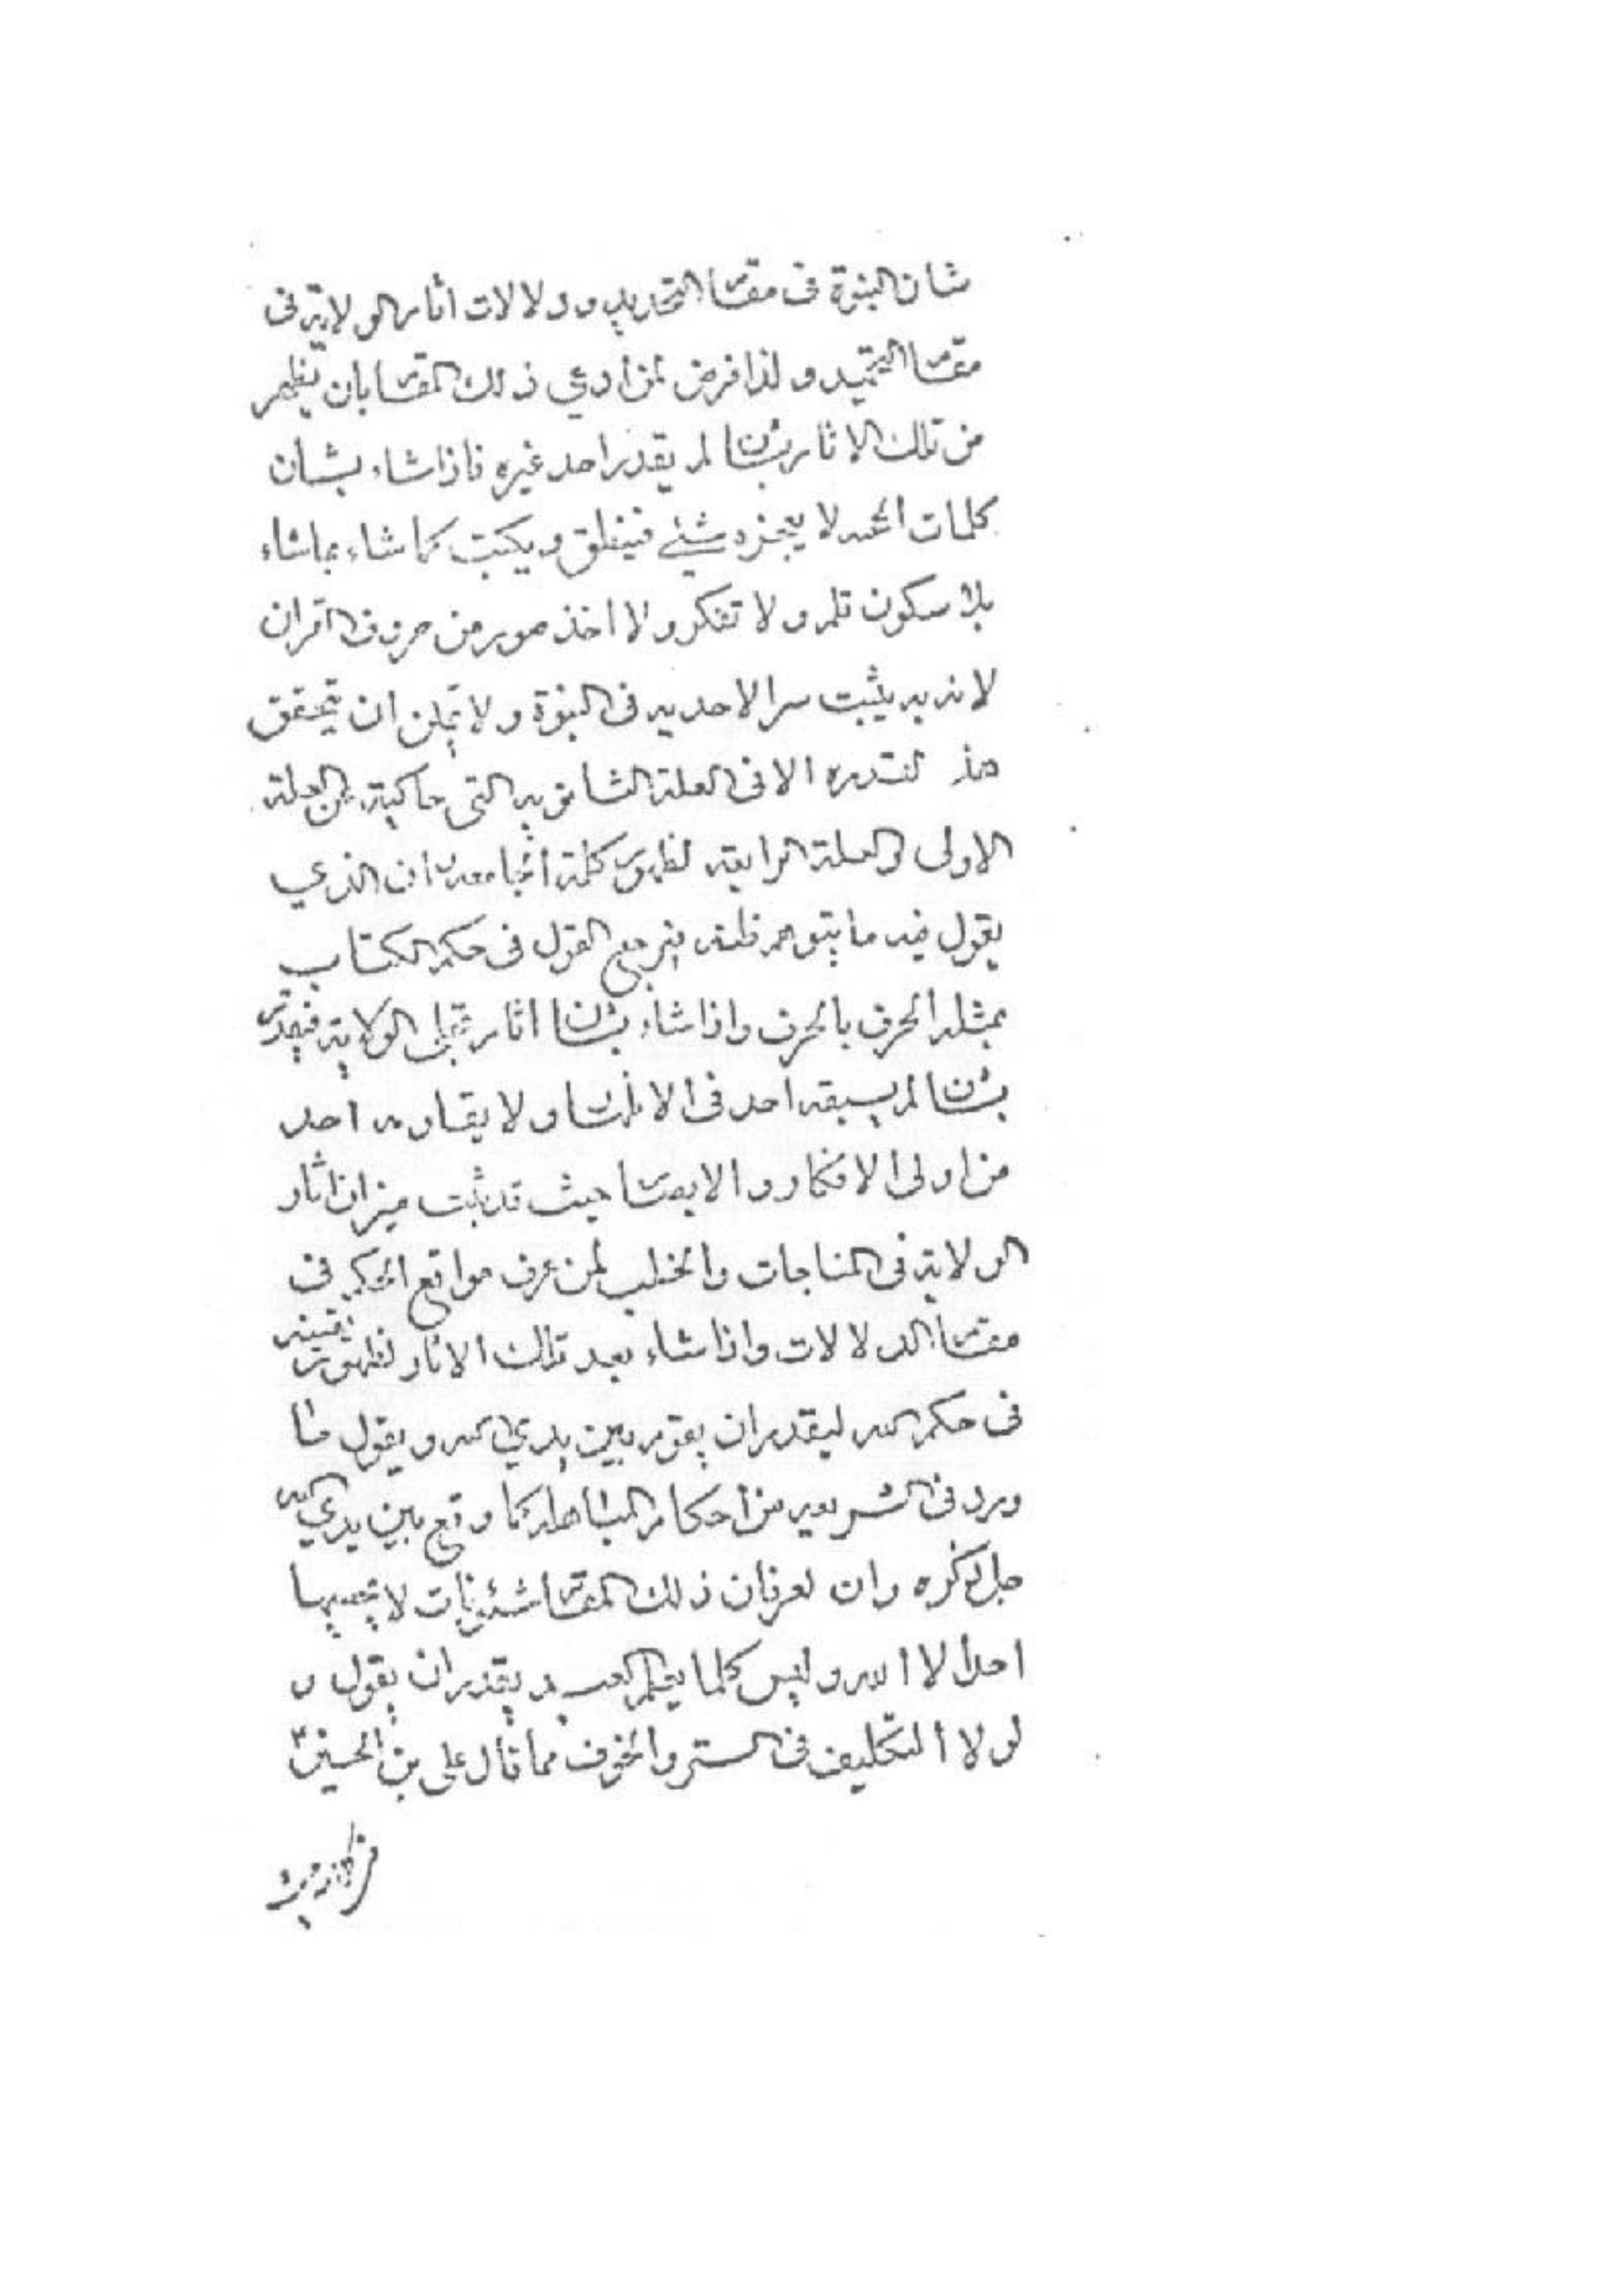 شان النبوة فی مقام التحدید و دلالات اثار الولایة فی
مقام التحمید و لذا فرض لمن ادعی ذلک المقام بان یظهر
من تلک الاثار بشان لم یقدر احد غیره فاذا شاء بشان
کلمات الحمد لا یعجزه شیئ فینطق و یکتب کما شاء بما شاء
بلا سکون قلم و لا تفکر و لا اخذ صور من حروف القران
لانه به یثبت سر الاحدیه فی النبوة و لا یمکن ان یتحقق
هذ القدره الا فی العلة الثانویه التی حاکیة عن العلة
الاولی والعلة الرابعة لظهور کلمة اذا ان الذی
یقول فیه ما یتوهم ظنه فیرجع القول فی حکم الکتاب
بمثله الحرف بالحرف واذا شاء بشان اثار تجلی الولایة فیقدر
بشان لم یسبقه احد فی الانشاء و لا یقاومه احد
من اولی الافکار و الابصار حیث قد ثبت میزان اثار
الولایة فی المناجات والخطب لمن عرف مواقع الحکم فی
مقام الدلالات واذا شاء بعد تلک الاثار لظهور یقینه
فی حکم الله لیقدر ان یقوم بین یدی الله و یقول ما
ورد فی الشریعه من احکام المباهله کما وقع بین یدی الله
جل ذکره وان لعرفان ذلک المقام شئونات لا یحصیها
احد الا الله و لیس کلما یعلم العبد یقدر ان یقول و
لو لا التکلیف فی الستر والخوف مما قال علی بن الحسین ع